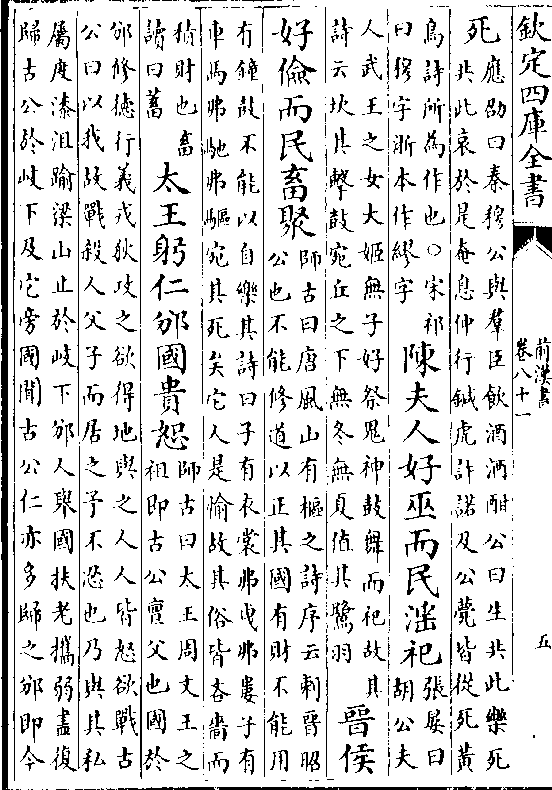 欽定四庫全書
前漢書
卷八十一
五
死
應劭曰秦穆公與羣臣飲酒酒酣公曰生共此樂死
共此哀於是奄息仲行鍼虎許諾及公薨皆從死黃
鳥詩所為作也○宋祁
曰穆字浙本作繆字
陳夫人好巫而民滛祀
張晏曰
胡公夫
人武王之女大姬無子好祭鬼神鼓舞而祀故其
詩云坎其擊鼓宛丘之下無冬無夏值其鷺羽
晉侯
好儉而民畜聚
師古曰唐風山有樞之詩序云刺晉昭
公也不能修道以正其國有財不能用
有鐘鼓不能以自樂其詩曰子有衣裳弗曳弗婁子有
車馬弗馳弗驅宛其死矣它人是愉故其俗皆吝嗇而
積財也畜
讀曰蓄
太王躬仁邠國貴恕
師古曰太王周文王之
祖即古公亶父也國於
邠修德行義戎狄攻之欲得地與之人人皆怒欲戰古
公曰以我故戰殺人父子而居之予不忍也乃與其私
屬度漆沮踰梁山止於岐下邠人舉國扶老攜弱盡復
歸古公於岐下及它旁國聞古公仁亦多歸之邠即今